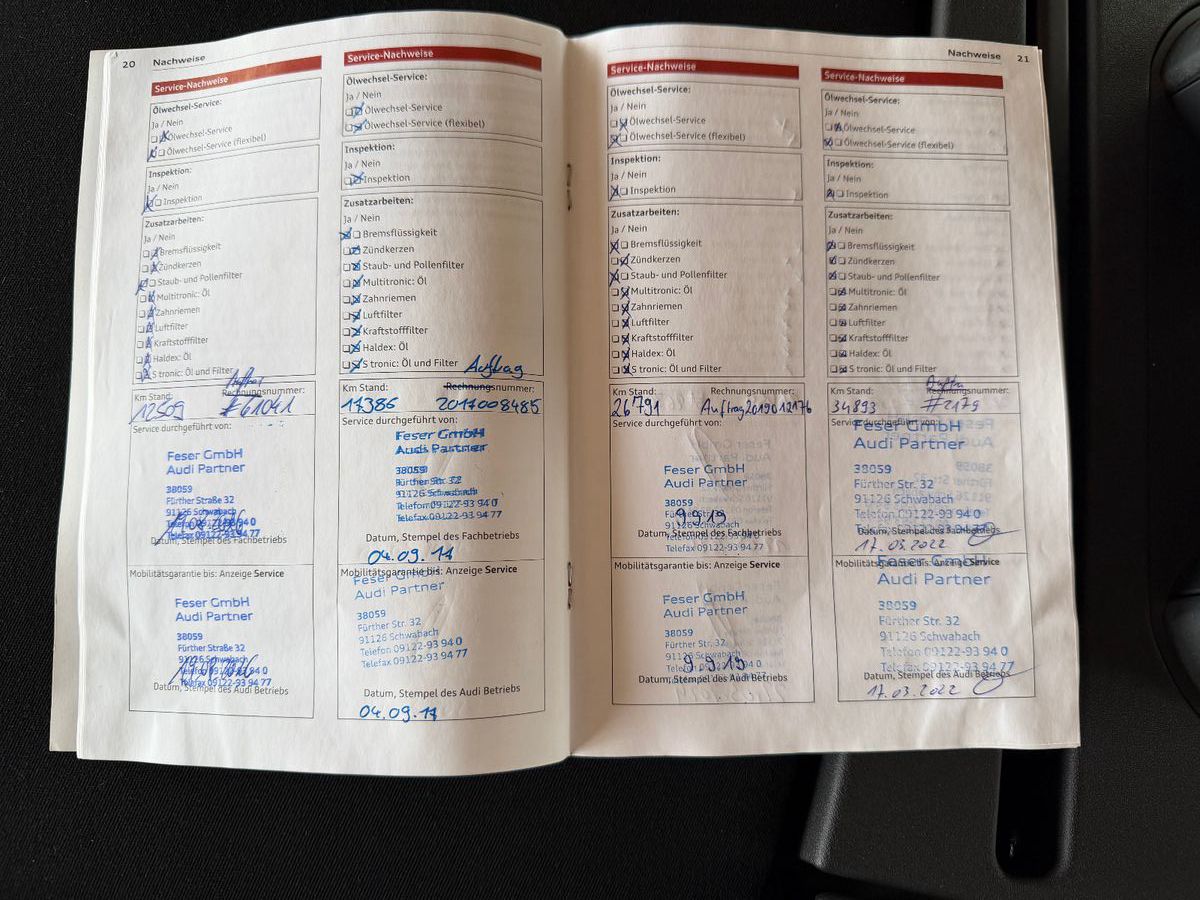 20 Nachweise
Service-Nachweise
Ölwechsel-Service:
Ja / Nein
Ölwechsel-Service
Ölwechsel-Service (flexibel)
Inspektion:
Ja / Nein
Inspektion
Zusatzarbeiten:
Ja / Nein
Bremsflüssigkeit
Zündkerzen
Staub- und Pollenfilter
Multitronic: Öl
Zahnriemen
Luftfilter
Kraftstofffilter
Haldex: Öl
S tronic: Öl und Filter
Km Stand: Rechnungsnummer:
12509 #61041
Service durchgeführt von:
Feser GmbH
Audi Partner
38059
Fürther Straße 32
91126 Schwabach
Telefon 09122-93 94 0
Telefax 09122-93 94 77
Datum, Stempel des Fachbetriebs
Mobilitätsgarantie bis: Anzeige Service
Feser GmbH
Audi Partner
38059
Fürther Straße 32
91126 Schwabach
Telefon 09122-93 94 0
Telefax 09122-93 94 77
Datum, Stempel des Audi Betriebs
Service-Nachweise
Ölwechsel-Service:
Ja / Nein
Ölwechsel-Service
Ölwechsel-Service (flexibel)
Inspektion:
Ja / Nein
Inspektion
Zusatzarbeiten:
Ja / Nein
Bremsflüssigkeit
Zündkerzen
Staub- und Pollenfilter
Multitronic: Öl
Zahnriemen
Luftfilter
Kraftstofffilter
Haldex: Öl
S tronic: Öl und Filter
Auftrag
Km Stand: Rechnungsnummer:
17386 2017008485
Service durchgeführt von:
Feser GmbH
Audi Partner
38059
Fürther Str. 32
91126 Schwabach
Telefon 09122-93 94 0
Telefax 09122-93 94 77
Datum, Stempel des Fachbetriebs
04.09.17
Mobilitätsgarantie bis: Anzeige Service
Feser GmbH
Audi Partner
38059
Fürther Str. 32
91126 Schwabach
Telefon 09122-93 94 0
Telefax 09122-93 94 77
Datum, Stempel des Audi Betriebs
04.09.17
Nachweise 21
Service-Nachweise
Ölwechsel-Service:
Ja / Nein
Ölwechsel-Service
Ölwechsel-Service (flexibel)
Inspektion:
Ja / Nein
Inspektion
Zusatzarbeiten:
Ja / Nein
Bremsflüssigkeit
Zündkerzen
Staub- und Pollenfilter
Multitronic: Öl
Zahnriemen
Luftfilter
Kraftstofffilter
Haldex: Öl
S tronic: Öl und Filter
Km Stand: Rechnungsnummer:
26791 Auftrag 2019012176
Service durchgeführt von:
Feser GmbH
Audi Partner
38059
Fürther Str. 32
9.9.19
91126 Schwabach
Datum, Stempel des Fachbetriebs
Telefax 09122-93 94 77
Mobilitätsgarantie bis: Anzeige Service
Feser GmbH
Audi Partner
38059
Fürther Str. 32
91126 Schwabach
9.9.19
Datum, Stempel des Audi Betriebs
Service-Nachweise
Ölwechsel-Service:
Ja / Nein
Ölwechsel-Service
Ölwechsel-Service (flexibel)
Inspektion:
Ja / Nein
Inspektion
Zusatzarbeiten:
Ja / Nein
Bremsflüssigkeit
Zündkerzen
Staub- und Pollenfilter
Multitronic: Öl
Zahnriemen
Luftfilter
Kraftstofffilter
Haldex: Öl
S tronic: Öl und Filter
Km Stand: Rechnungsnummer:
34893 #2179
Service durchgeführt von:
Feser GmbH
Audi Partner
38059
Fürther Str. 32
91126 Schwabach
Telefon 09122-93 94 0
Telefax 09122-93 94 77
Datum, Stempel des Fachbetriebs
17.03.2022
Mobilitätsgarantie bis: Anzeige Service
Feser GmbH
Audi Partner
38059
Fürther Str. 32
91126 Schwabach
Telefon 09122-93 94 0
Telefax 09122-93 94 77
Datum, Stempel des Audi Betriebs
17.03.2022